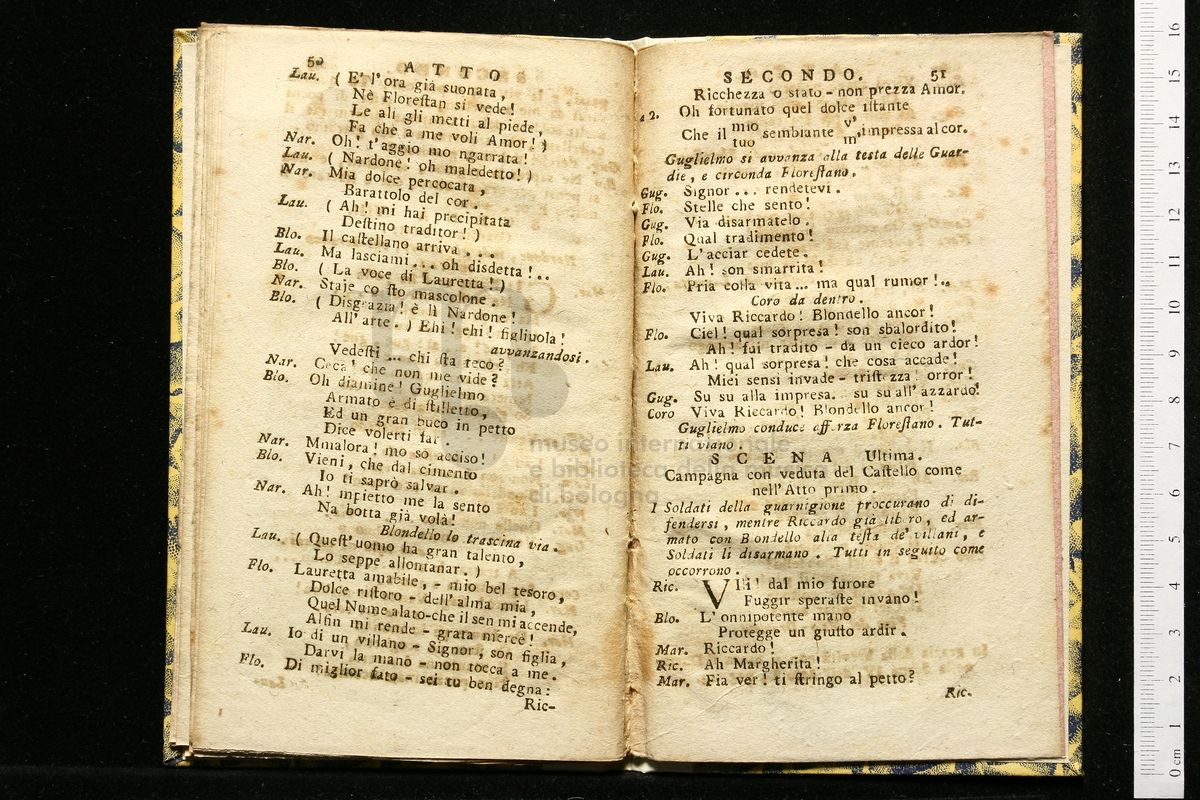 50
ATTO
Lau. ( E' l'ora già suonata,
Nè Floreſtan si vede!
Le ali gli metti al piede,
Fa chè a me voli Amor! )
Nar. Oh! t'aggio mo ngarrata!
Lau. ( Nardone! oh maledetto! )
Nar. Mia dolce percocata,
Barattolo del cor.
Lau. ( Ah! mi hai precipitata
Deſtino traditor! )
Blo. Il caſtellano arriva . . .
Lau. Ma lasciami ... oh disdetta! ..
Blo. ( La voce di Lauretta! )
Nar. Staje co ſto mascolone.
Blo. ( Disgrazia! è lì Nardone!
All'arte. ) Ehi! ehi! figliuola!
avvanzandosi.
Vedeſti ... chi ſta teco?
Nar. Ceca! che non me vide?
Blo. Oh diamine! Guglielmo
Armato è di ſtilletto,
Ed un gran buco in petto
Dice volerti far.
Nar. Mmalora! mo so acciso!
Blo. Vieni, che dal cimento
Io ti saprò salvar.
Nar. Ah! mpietto me la sento
Na botta già volà!
Blondello lo trascina via.
Lau. ( Queſt'uomo ha gran talento,
Lo seppe allontanar. )
Flo. Lauretta amabile, - mio bel tesoro,
Dolce riſtoro - dell'alma mia,
Quel Nume alato-che il sen mi accende,
Alfin mi rende - grata mercè!
Lau. Io di un villano - Signor, son figlia,
Darvi la mano - non tocca a me.
Flo. Di miglior fato - sei tu ben degna:
Ric-
SECONDO.
51
Ricchezza o stato - non prezza Amor.
a 2. Oh fortunato quel dolce iſtante
Che il mio sembiante v' impressa al cor.
tuo m'
Guglielmo si avvanza alla testa delle Guar-
die, e circonda Floreſtano.
Gug. Signor ... rendetevi.
Flo. Stelle che sento!
Gug. Via disarmatelo.
Flo. Qual tradimento!
Gug. L'acciar cedete.
Lau. Ah! son smarrita!
Flo. Pria colla vita ... ma qual rumor!..
Coro da dentro.
Viva Riccardo! Blondello ancor!
Flo. Ciel! qual sorpresa! son sbalordito!
Ah! fui tradito - da un cieco ardor!
Lau. Ah! qual sorpresa! che cosa accade!
Miei sensi invade - triſtezza! orror!
Gug. Su su alla impresa.. su su all'azzardo!
Coro Viva Riccardo! Blondello ancor!
Guglielmo conduce a fforza Floreſtano. Tut-
ti viano.
SCENA Ultima.
Campagna con veduta del Caſtello come
nell'Atto primo.
I Soldati della guarnigione proccurano di di-
fendersi, mentre Riccardo già libero, ed ar-
mato con Blondello alla teſta de' villani, e
Soldati li disarmano. Tutti in seguito come
occorrono.
Ric. VIli! dal mio furore
Fuggir speraſte invano!
Blo. L'onnipotente mano
Protegge un giuſto ardir.
Mar. Riccardo!
Ric. Ah Margherita!
Mar. Fia ver! ti ſtringo al petto?
Ric.
museo internazionale
e biblioteca della musica
di bologna
0 cm 1 2 3 4 5 6 7 8 9 10 11 12 13 14 15 16